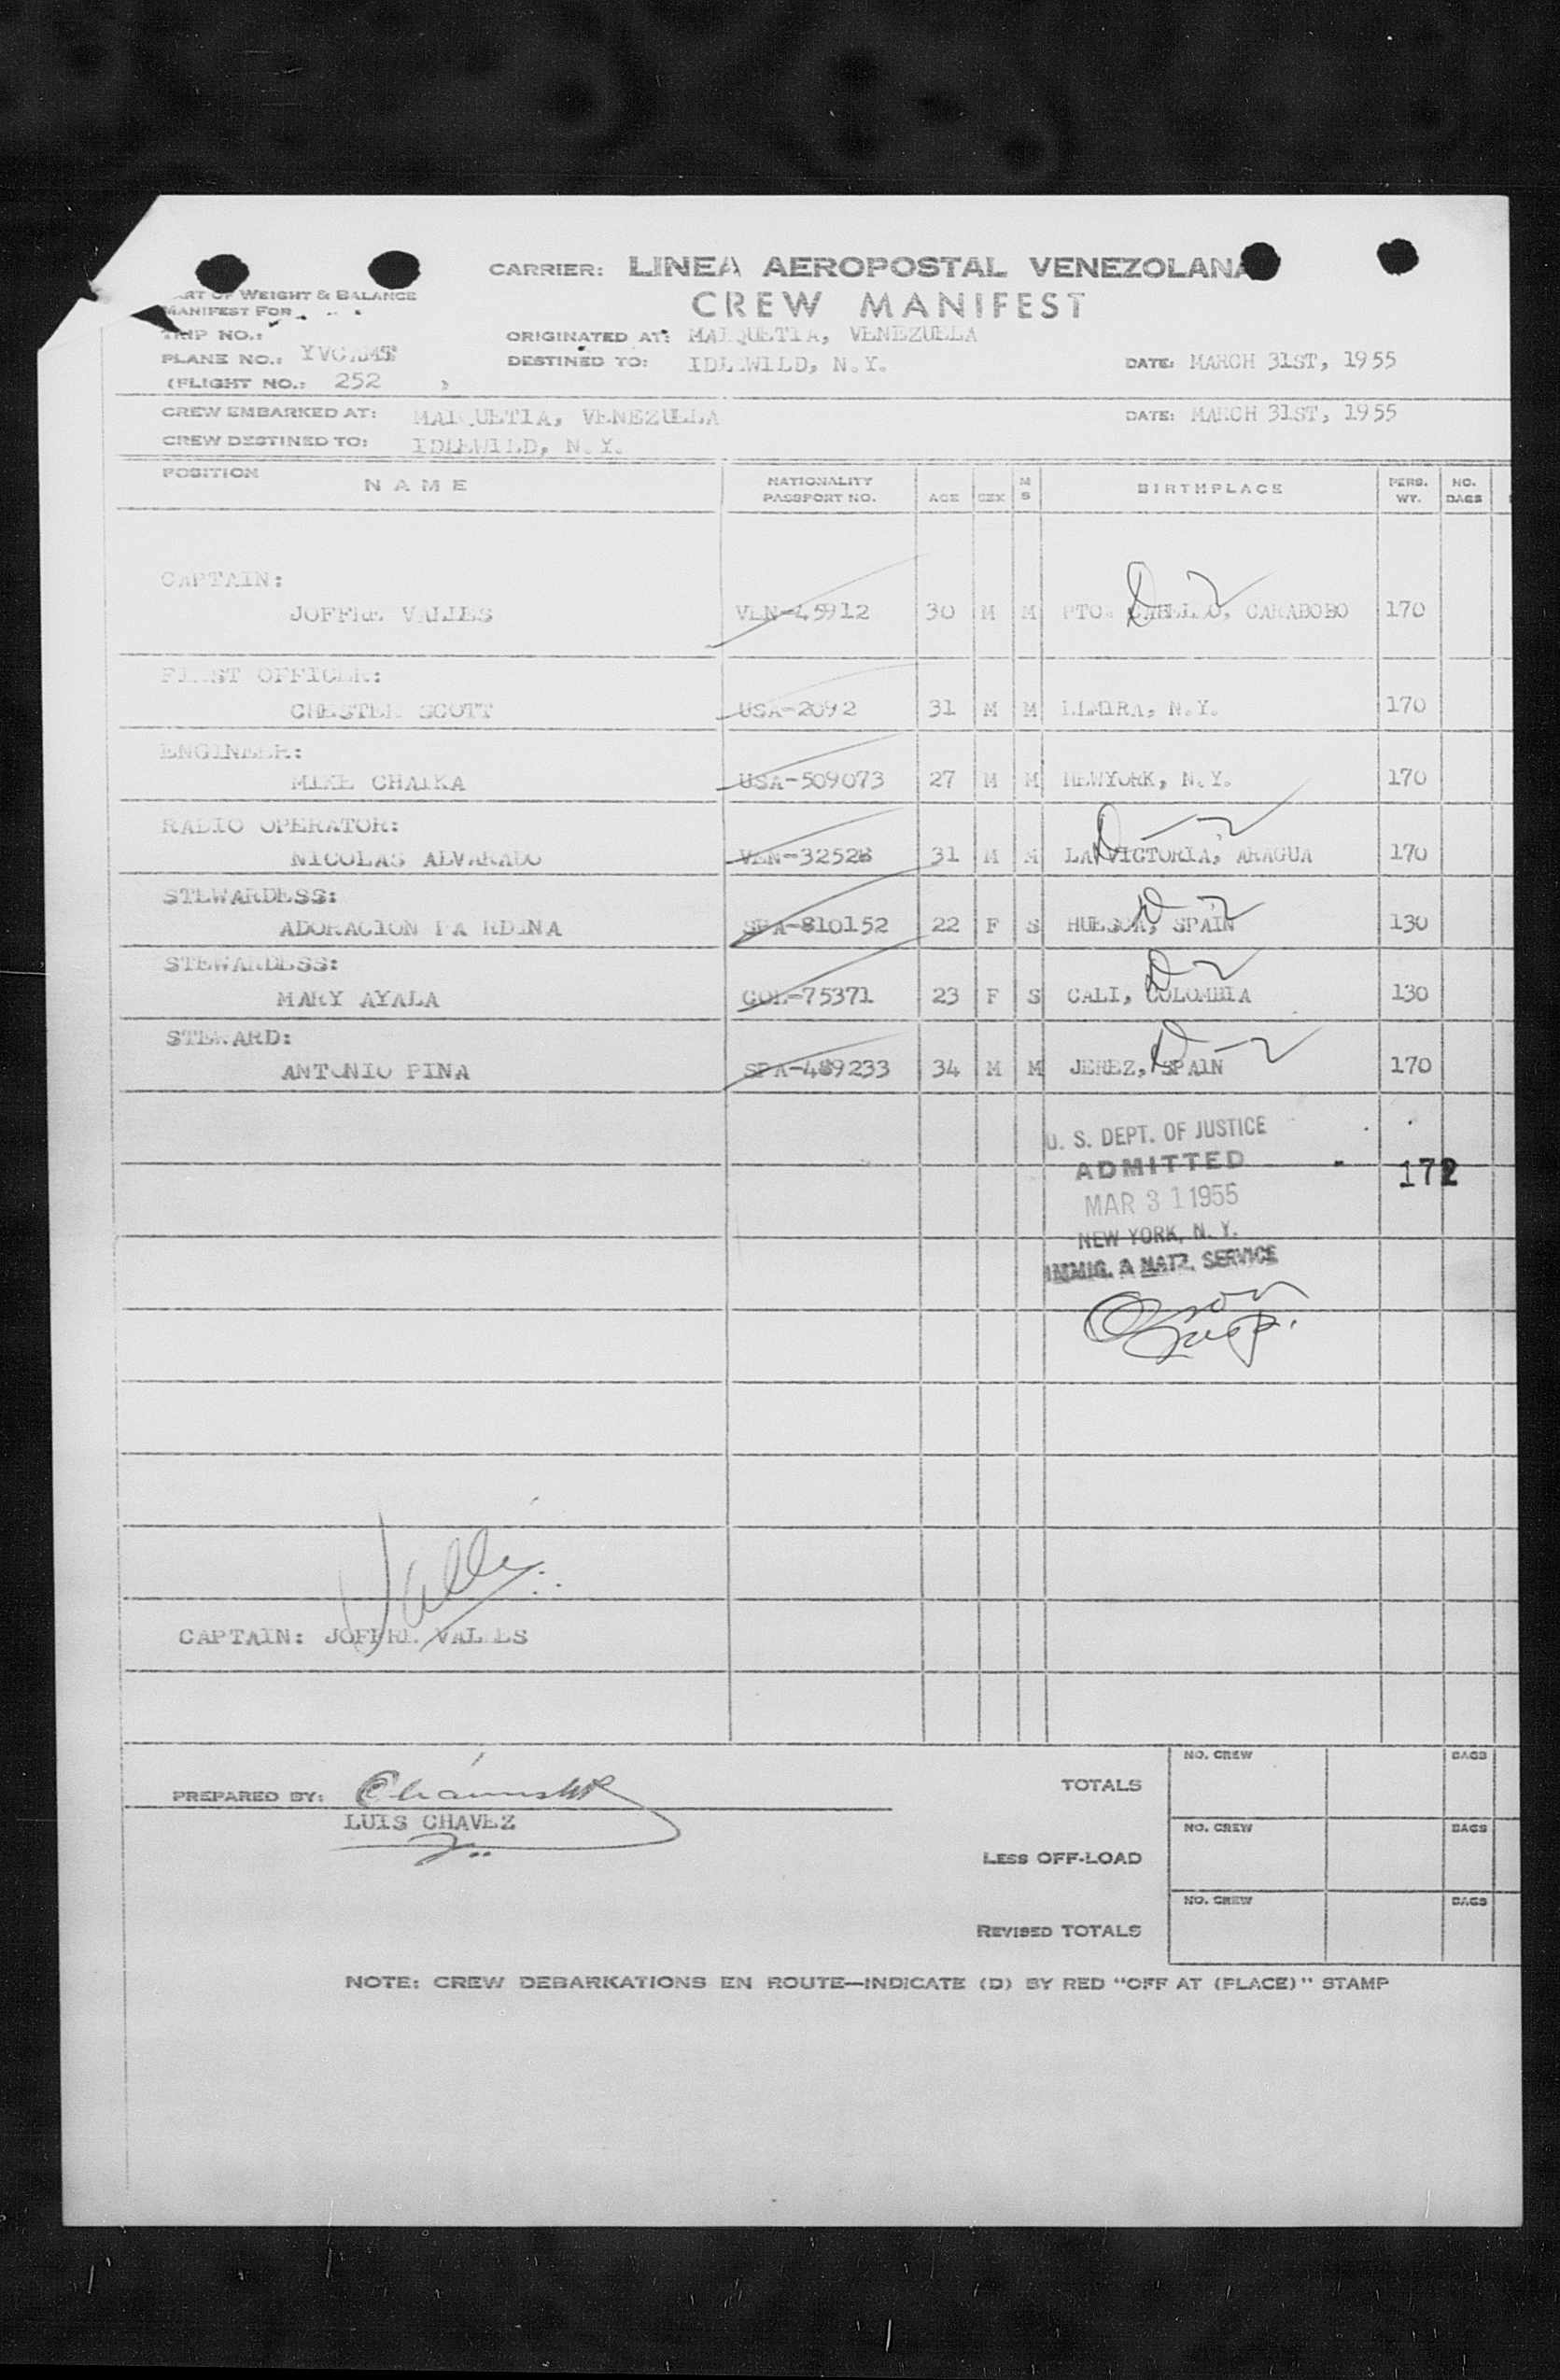 CARRIER: LINEA AEROPOSTAL VENEZOLANA
CREW MANIFEST
WEIGHT & BALANCE
MANIFEST FOR
TRIP NO.:
ORIGINATED AT: MAIQUETIA, VENEZUELA
PLANE NO.:
DESTINED TO: IDLEWILD, N.Y.
DATE: MARCH 31ST, 1955
(FLIGHT NO.: 252 )
CREW EMBARKED AT: MAIQUETIA, VENEZUELA
DATE: MARCH 31ST, 1955
CREW DESTINED TO: IDLEWILD, N.Y.
POSITION NAME NATIONALITY PASSPORT NO. AGE SEX M S BIRTHPLACE PERS. WT. NO. BAGS
CAPTAIN:
JOFFRE VALLES VEN-45912 30 M M PTO. CABELLO, CARABOBO 170
D-2
FIRST OFFICER:
CHESTER SCOTT USA-2092 31 M M ELMIRA, N.Y. 170
ENGINEER:
MIKE CHAIKA USA-509073 27 M M NEWYORK, N.Y. 170
RADIO OPERATOR:
NICOLAS ALVARADO VEN-32528 31 M M LA VICTORIA, ARAGUA 170
D-2
STEWARDESS:
ADORACION PA RDINA SPA-810152 22 F S HUESCA, SPAIN 130
D-2
STEWARDESS:
MARY AYALA COL-75371 23 F S CALI, COLOMBIA 130
D-2
STEWARD:
ANTONIO PINA SPA-489233 34 M M JEREZ, SPAIN 170
D-2
U. S. DEPT. OF JUSTICE
ADMITTED
172
MAR 31 1955
NEW YORK, N. Y.
IMMIG. & NATZ. SERVICE
Insp.
Valles
CAPTAIN: JOFFRE VALLES
NO. CREW BAGS
TOTALS
PREPARED BY:
LUIS CHAVEZ
NO. CREW BAGS
LESS OFF-LOAD
NO. CREW BAGS
REVISED TOTALS
NOTE: CREW DEBARKATIONS EN ROUTE—INDICATE (D) BY RED "OFF AT (PLACE)" STAMP